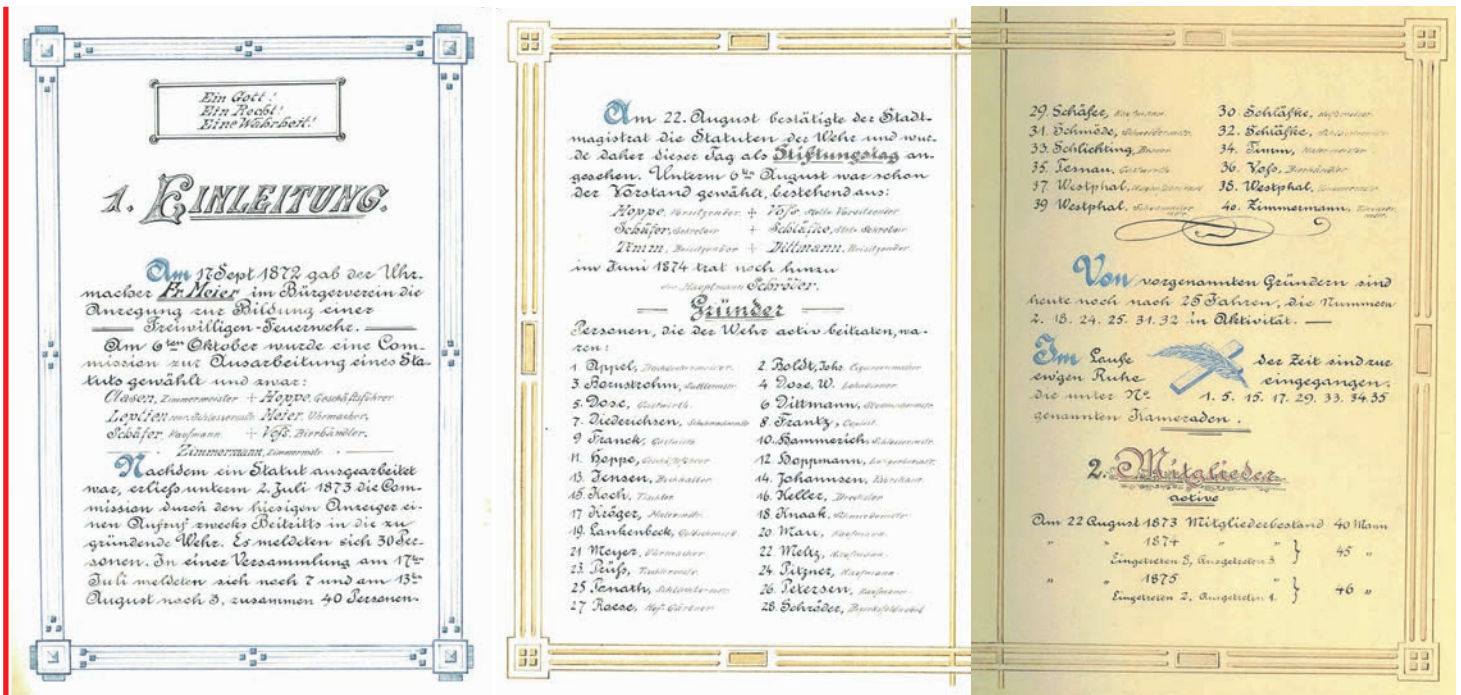 Ein Gott!
Ein Recht!
Eine Wahrheit!
1. EINLEITUNG.
Am 17 Sept 1872 gab der Uhr-
macher Fr. Meier im Bürgerverein die
Anregung zur Bildung einer
Freiwilligen-Feuerwehr.
Am 6ten Oktober wurde eine Com-
mission zur Ausarbeitung eines Sta-
tuts gewählt und zwar:
Clasen, Zimmermeister + Hoppe, Geschäftsführer
Leptien Schlossermstr. Meier, Uhrmacher,
Schäfer, Kaufmann + Voß, Bierhändler.
Zimmermann, Zimmermstr.
Nachdem ein Statut ausgearbeitet
war, erließ unterm 2. Juli 1873 die Com-
mission durch den hiesigen Anzeiger ei-
nen Aufruf zwecks Beitritts in die zu
gründende Wehr. Es meldeten sich 30 Per-
sonen. In einer Versammlung am 17ten
Juli meldeten sich noch 7 und am 13ten
August noch 3, zusammen 40 Personen.
Am 22. August bestätigte der Stadt-
magistrat die Statuten der Wehr und wur-
de daher dieser Tag als Stiftungstag an-
gesehen. Unterm 6ten August war schon
der Vorstand gewählt, bestehend aus:
Hoppe, Vorsitzender + Voß, Stellv. Vorsitzender
Schäfer, Sekretair + Schläfke, Stelv. Sekretair
Timm, Beisitzender + Dittmann, Beisitzender.
im Juni 1874 trat noch hinzu
der Hauptmann Schröder.
Gründer
Personen, die der Wehr activ beitraten, wa-
ren:
1. Appel, 2. Boldt, Johs. Cigarrenmacher
3. Bornstrohm, Sattlermstr. 4 Dose, W.
5. Dose, Gastwirth. 6 Dittmann,
7. Diederichsen, 8. Frantz,
9 Franck, Gastwirth 10. Hammerich, Schlossermstr.
11. Hoppe, Geschäftsführer 12. Hoppmann,
13. Jensen, Buchhalter 14. Johannsen,
15. Koch, Tischler 16. Keller, Drechsler
17 Kröger, Malermstr. 18. Knaak,
19. Lankenbeck, Goldschmied 20. Mau, Kaufmann.
21 Meyer, Uhrmacher 22. Meltz, Kaufmann.
23. Prüß, Tischlermstr. 24. Pitzner, Kaufmann.
25 Penath, 26. Petersen, Kaufmann
27 Raese, Hof-Gärtner 28. Schröder, Bezirksfeldwebel
29. Schäfer, Kaufmann. 30. Schläfke,
31. Schmöde, Schneidermstr. 32. Schläfke,
33. Schlichting, 34. Timm, Malermeister.
35. Tesnau, Gastwirth 36. Voß, Bierhändler
37. Westphal, 38. Westphal,
39 Westphal, 40. Zimmermann, Zimmermstr.
Von vorgenannten Gründern sind
heute noch nach 25 Jahren, die Nummern
2. 18. 24. 25. 31. 32 in Aktivität.
Im Laufe der Zeit sind zur
ewigen Ruhe eingegangen.
die unter No. 1. 5. 15. 17. 29. 33. 34. 35
genannten Kameraden.
2. Mitglieder
active
Am 22 August 1873 Mitgliederbestand 40 Mann
" " 1874 " " } 45 "
Eingetreten 8, Ausgetreten 3
" " 1875 " } 46 "
Eingetreten 2, Ausgetreten 1.